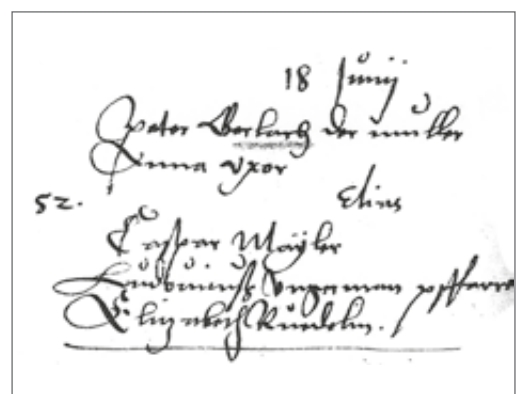 18 Junij
Peter Gerlach der müller
Anna uxor
52. Elias
Caspar Mayler
Ludouicus Ungerman pfarrer
Elizabeth Ruedelin.